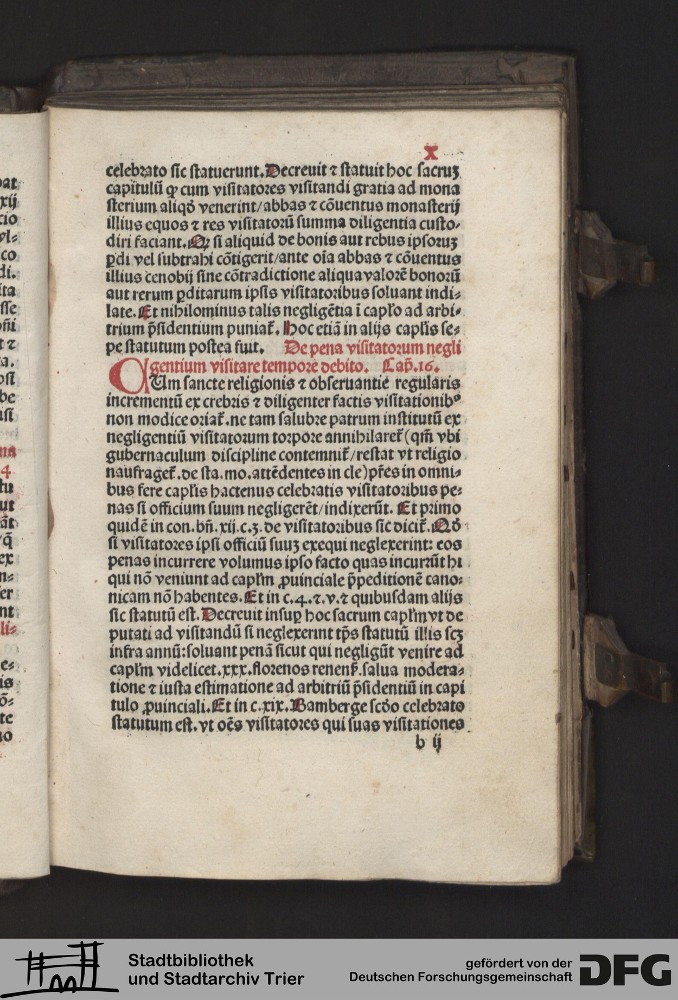 x
celebrato sic statuerunt. Decreuit ⁊ statuit hoc sacruꝫ
capitulū ꝙ cum visitatores visitandi gratia ad mona
sterium aliqḋ venerint/abbas ⁊ cōuentus monasterij
illius equos ⁊ res visitatorū summa diligentia custo⸗
diri faciant. Qꝛ si aliquid de bonis aut rebus ipsoruꝫ
ꝑdi vel subtrahi cōtigerit/ante oīa abbas ⁊ cōuentus
illius cenobij sine cōtradictione aliqua valorē bonorū
aut rerum ꝑditarum ipsis visitatoribus soluant indi⸗
late. Et nihilominus talis negligētia ī capl̄o ad arbi⸗
trium p̄sidentium puniat᷑. Hoc etiā in alijs capl̄is se⸗
pe statutum postea fuit. De pena visitatorum negli
gentium visitare tempore debito. Cap̄. 16.
CUm sancte religionis ⁊ obseruantie regularis
incrementū ex crebris ⁊ diligenter factis visitationibꝰ
non modice oriat᷑. ne tam salubre patrum institutū ex
negligentiū visitatorum torpore annihilaret᷑ (qm̄ vbi
gubernaculum discipline contemnit᷑/restat vt religio
naufraget᷑. de sta. mo. attēdentes in cle) pr̄es in omni⸗
bus fere capl̄is hactenus celebratis visitatoribus pe⸗
nas si officium suum negligerēt/indixerūt. Et primo
quidē in con. bn̄. xij. c. 3. de visitatoribus sic dicit᷑. Qḋ
si visitatores ipsi officiū suuꝫ exequi neglexerint: eos
penas incurrere volumus ipso facto quas incurrūt hi
qui nō veniunt ad capl̄m ꝓuinciale p̄peditionē cano⸗
nicam nō habentes. Et in c. 4. ⁊. v. ⁊ quibusdam alijs
sic statutū est. Decreuit insuꝑ hoc sacrum capl̄m vt de
putati ad visitandū si neglexerint tp̄s statutū illis scꝫ
infra annū: soluant penā sicut qui negligūt venire ad
capl̄m videlicet. xxx. florenos renen̄. salua modera⸗
tione ⁊ iusta estimatione ad arbitriū p̄sidentiū in capi
tulo ꝓuinciali. Et in c. xix. Bamberge scḋo celebrato
statutum est. vt oēs visitatores qui suas visitationes
b ij
Stadtbibliothek
und Stadtarchiv Trier
gefördert von der
Deutschen Forschungsgemeinschaft
DFG